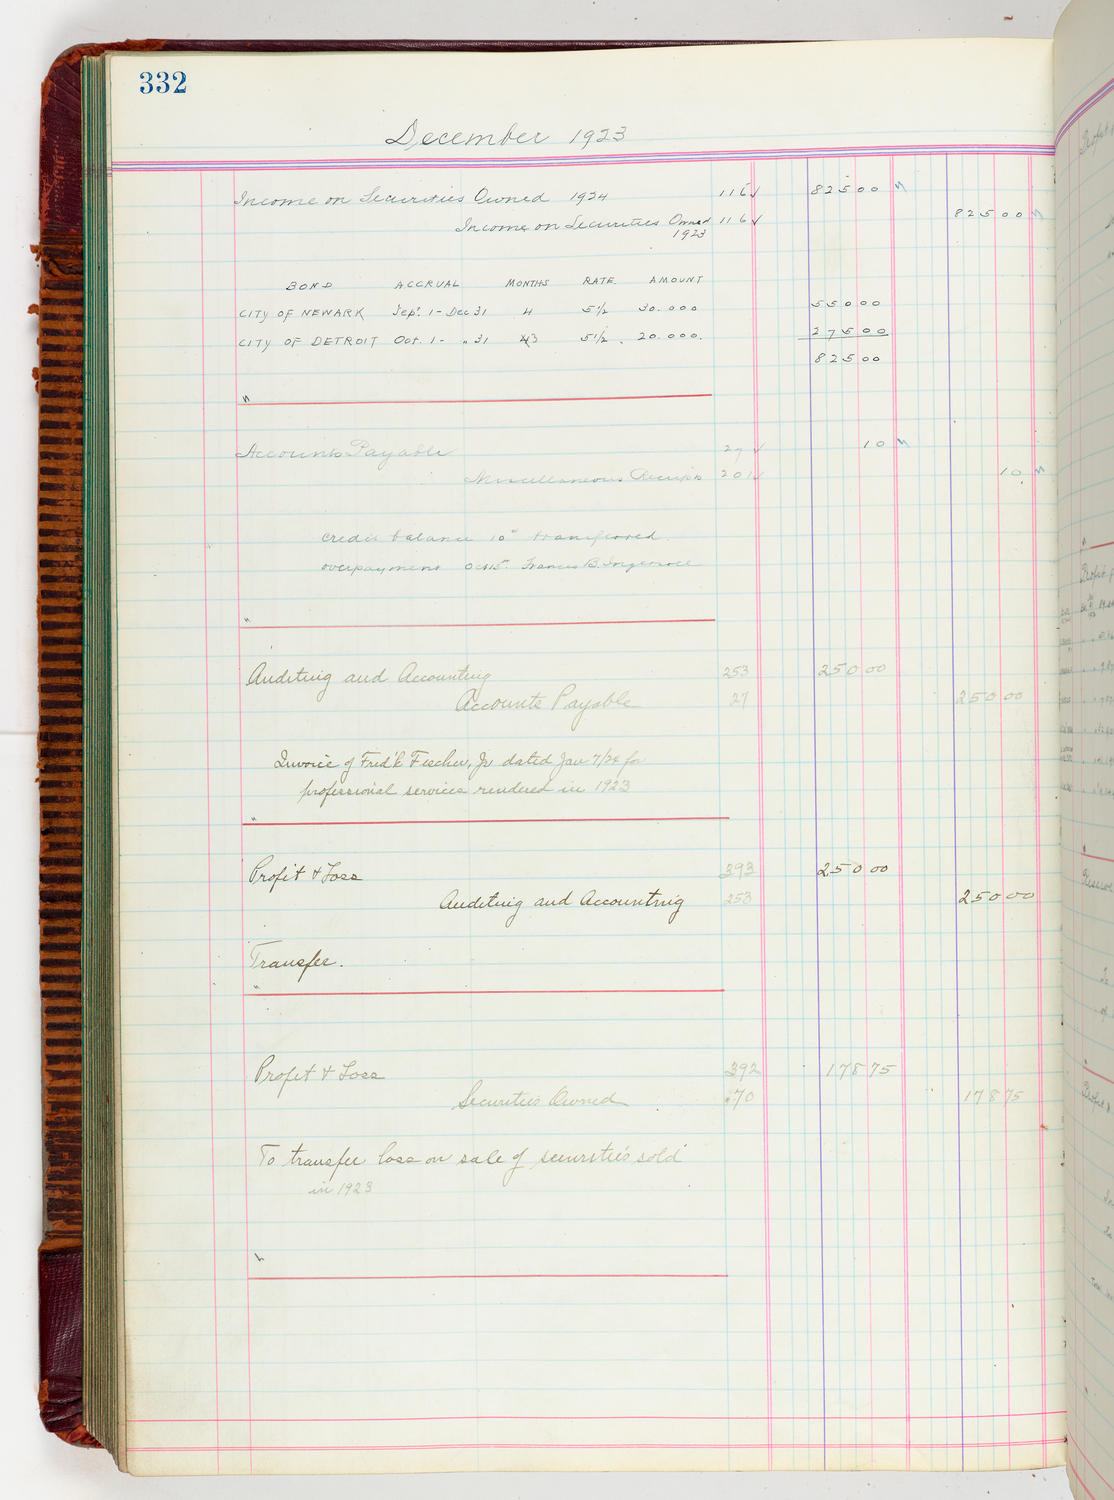 332
December 1923
Income on Securities Owned 1924 116 √ 825 00
Income on Securities Owned 116 √ 825 00
1923
BOND ACCRUAL MONTHS RATE. AMOUNT
CITY OF NEWARK Sept. 1 - Dec 31 4 5½ 30.000 550 00
CITY OF DETROIT Oct. 1 - " 31 3 5½ 20.000. 275 00
825 00
"
Accounts Payable 27 √ 10
Miscellaneous Receipts 201 √ 10
credit balance 10 transferred.
overpayment Oct 15. Francis B.
"
Auditing and Accounting 253 250 00
Accounts Payable 27 250 00
Invoice of Fred'k Fischer, Jr dated Jan 7/24 for
professional services rendered in 1923
"
Profit & Loss 393 250 00
Auditing and Accounting 253 250 00
Transfer.
"
Profit & Loss 392 178 75
Securities Owned 70 178 75
To transfer loss on sale of securities sold
in 1923